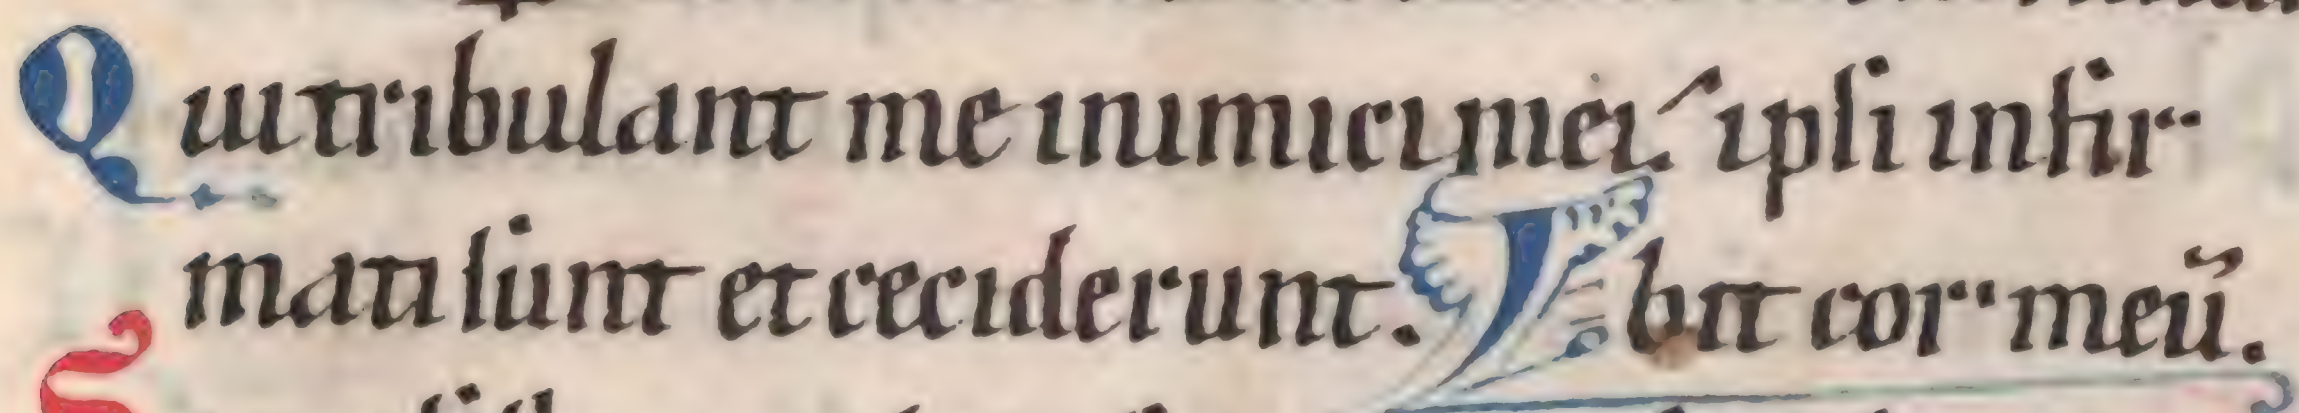 Qui tribulant me inimici mei: ipſi infir-
mati ſunt et ceciderunt. bit cor meū.